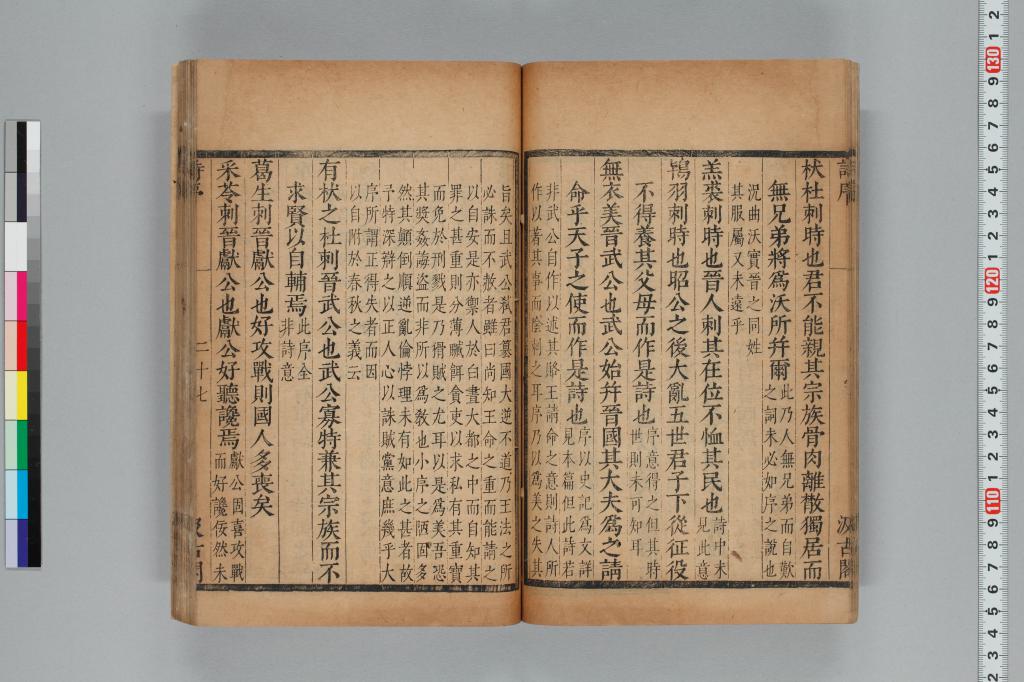 杕杜刺時也君不能親其宗族骨肉離散獨居而
無兄弟將爲沃所幷爾此乃人無兄弟而自歎
之詞未必如序之說也
況曲沃實晉之同姓
其服屬又未遠乎
羔裘刺時也晉人刺其在位不恤其民也詩中未
見此意
鴇羽刺時也昭公之後大亂五世君子下從征役
不得養其父母而作是詩也序意得之但其時
世則未可知耳
無衣美晉武公也武公始幷晉國其大夫爲之請
命乎天子之使而作是詩也序以史記爲文詳
見本篇但此詩若
非武公自作以述其賂王請命之意則詩人所
作以著其事而陰刺之耳序乃以爲美之失其
旨矣且武公弒君篡國大逆不道乃王法之所
必誅而不赦者雖曰尚知王命之重而能請之
以自安是亦禦人於白晝大都之中而自知其
罪之甚重則分薄贓餌貪吏以求私有其重寶
而免於刑戮是乃猾賊之尤耳以是爲美吾恐
其奬姦誨盜而非所以爲教也小序之陋固多
然其顛倒順逆亂倫悖理未有如此之甚者故
予特深辯之以正人心以誅賊黨意庶幾乎大
序所謂正得失者而因
以自附於春秋之義云
有杕之杜刺晉武公也武公寡特兼其宗族而不
求賢以自輔焉此序全
非詩意
葛生刺晉獻公也好攻戰則國人多喪矣
采苓刺晉獻公也獻公好聽讒焉獻公固喜攻戰
而好讒佞然未
二十七
汲古閣